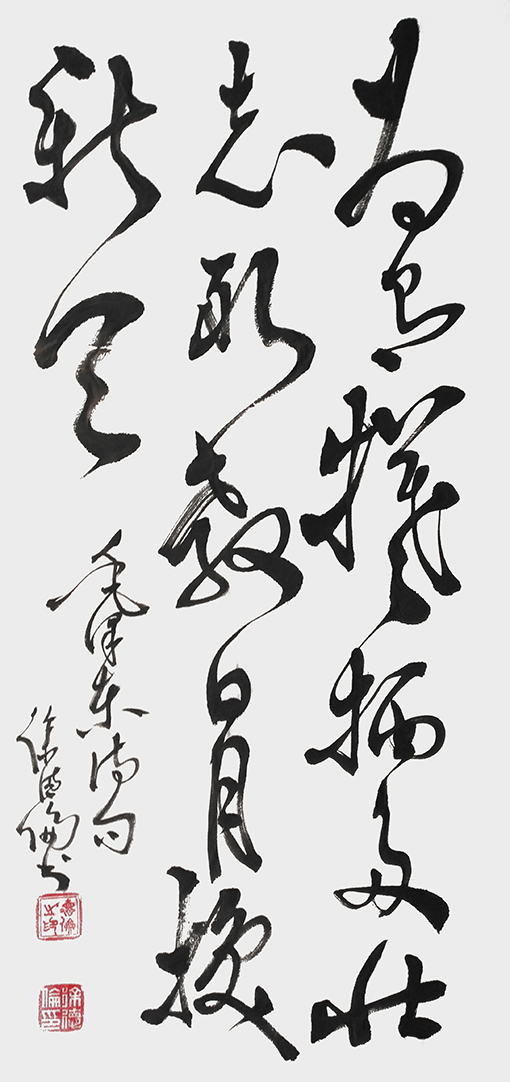 为有牺牲多壮
志敢教日月换
新天
毛泽东诗句
徐德伦书
徐德倫印